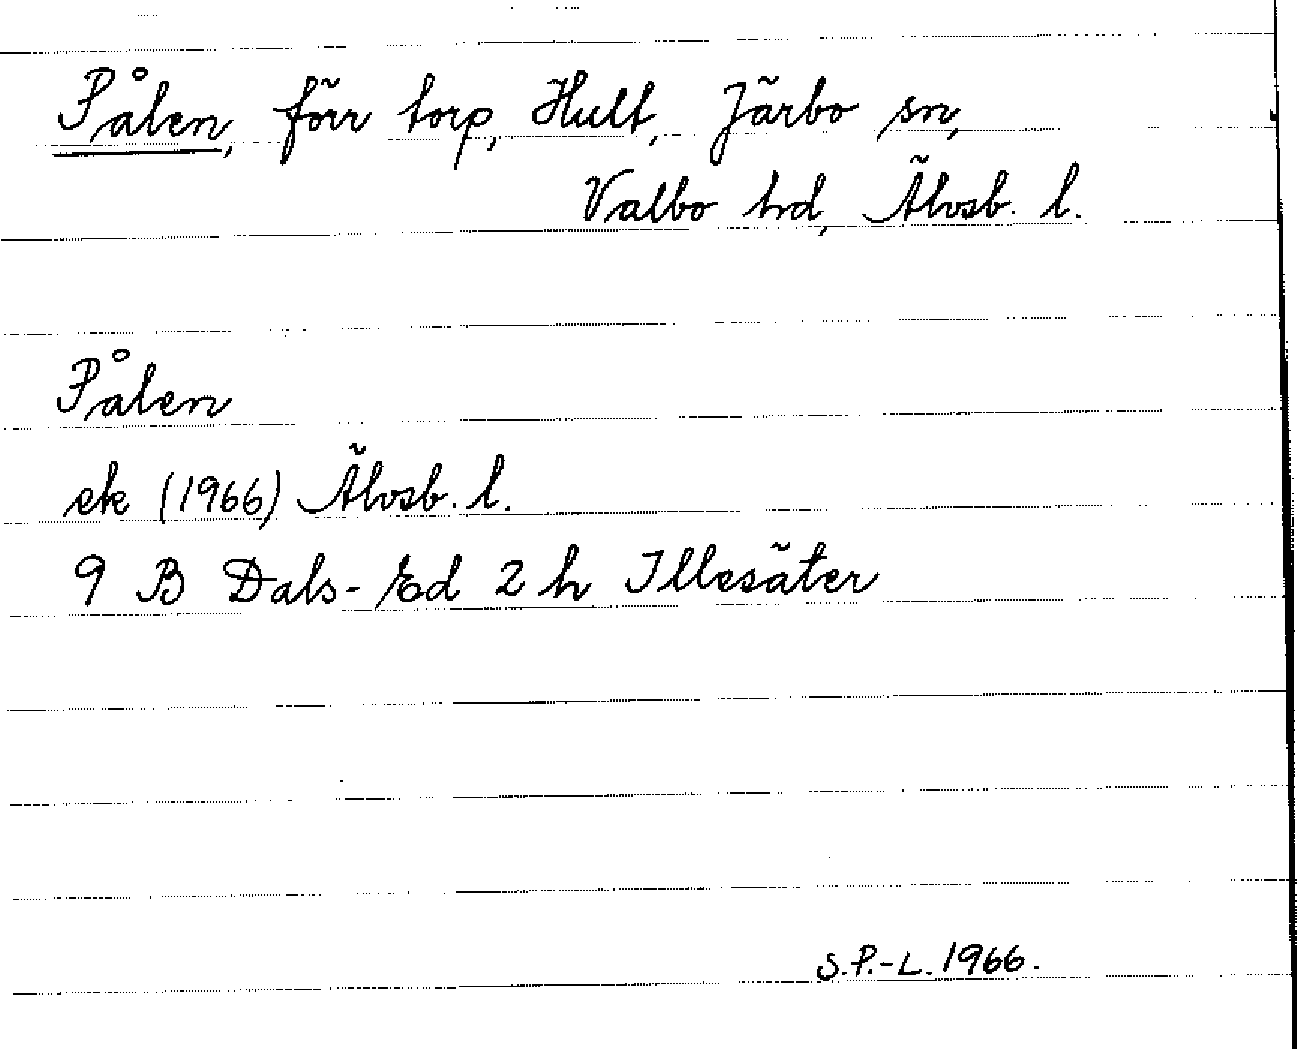 Pålen, förr torp, Hult, Järbo sn,
Valbo hd, Älvsb. l.
Pålen
ek (1966) Älvsb. l.
9 B Dals-Ed 2 h Illesäter
S.P.-L. 1966.